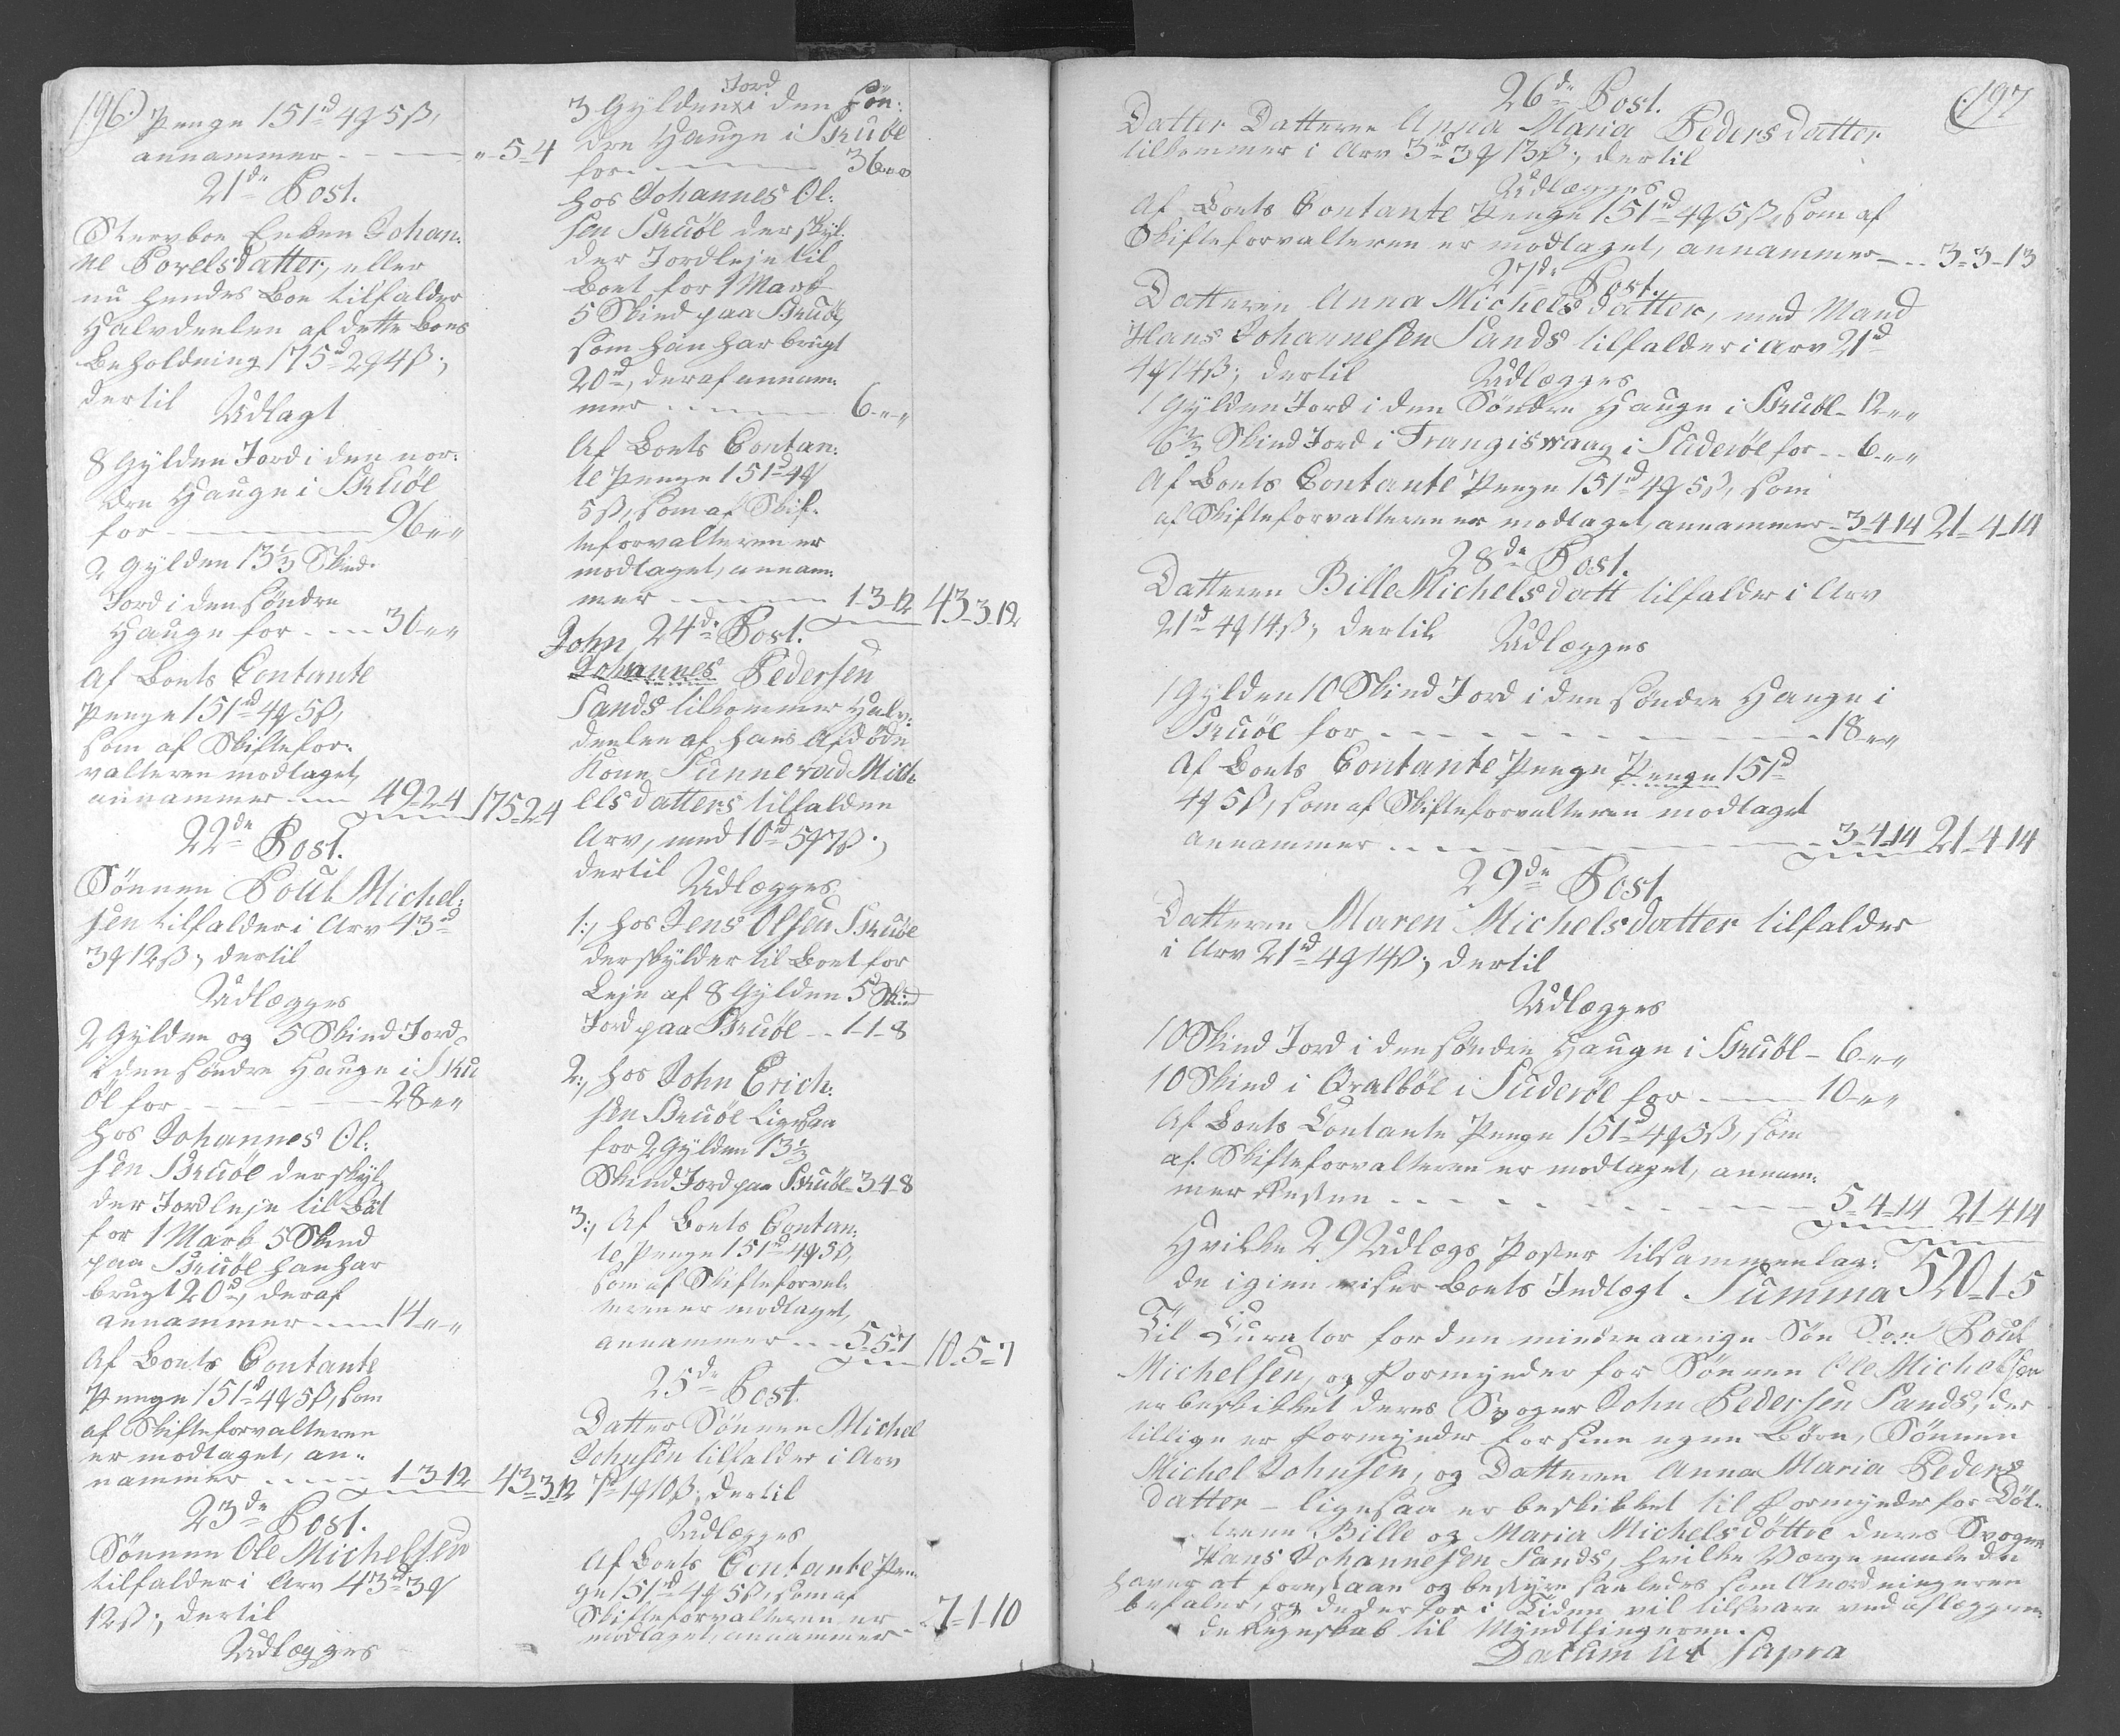 196.)
Penge 151rd 4ϥ 5ß,
annammer - - - - „-5-4
21de Post.
Stervboe Enken Johan:
ne Povelsdatter, eller
nu hendes Boe tilfalder
Halvdeelen af dette Boes
Beholdning 175rd 2ϥ 4ß;
dertil
Udlagt
8 Gylden Jord i den nor:
dre Hauge i Skuöe
for - - - - 96-„-„
2 Gylden 13⅓ Skind
Jord i den söndre
Hauge for - - - 30-„-„
Af Boets Contante
Penge 151rd 4ϥ 5ß,
som af Skiftefor:
valteren modtaget,
annammer - - 49-2-4 175-2-4
22de Post.
Sönnen Poul Michel:
sen tilfalder i Arv 43rd
3ϥ 12ß; dertil
Udlægges
2 Gylden og 5 Skind Jord
i den söndre Hauge i Sku
öe for - - - - 28-„-„
Hos Johannes Ol:
sen Skuöe der skyl:
der Jordleje til Boet
for 1 Mark 5 Skind
paa Skuöe han har
brugt 20rd, deraf
annammer - - - 14-„-„
Af Boets Contante
Penge 151rd 4ϥ 5ß, som
af Skifteforvalteren
er modtaget, an:
nammer - - - - 1-3-12 43-3-12
23de Post.
Sönnen Ole Michelsen
tilfalder i Arv 43rd 3ϥ
12ß; dertil
Udlægges
Jord
3 Gylden i den Sön:
dre Hauge i Skuöe
for - - - - 36-„-„
Hos Johannes Ol:
sen Skuöe der skyl:
der Jordleje til
Boet for 1 Mark
5 Skind paa Skuöe,
som han har brugt
20rd, deraf annam:
mer - - - - 6-„-„
Af Boets Contan:
te Penge 151rd 4ϥ
5ß, som af Skif:
teforvalteren er
modtaget, annam:
mer - - - - 1-3-12 43-3-12
24de Post.
John
Johannes Pedersen
Sands tilkommer Halv:
deelen af hans Afdöde
Kone Sunnevad Mich
elsdatters tilfalden
Arv, med 10rd 5ϥ 7ß;
dertil
Udlægges
1:, Hos Jens Olsen Skuöe
der skylder til Boet for
Leje af 8 Gylden 5 Skind
Jord paa Skuöe - - 1-1-8
2:, Hos John Erich:
sen Skuöe Ligesaa
for 2 Gylden 13⅓
Skind Jord paa Skuöe - 3-4-8
3:, Af Boets Contan:
te Penge 151rd 4ϥ 5ß,
som af Skifteforval:
teren er modtaget,
annammer - - - 5-5-7 10-5-7
25de Post.
Datter Sönnen Michel
Johnsen tilfalder i Arv
7rd 1ϥ 10ß; dertil
Udlægges
Af Boets Contante Pen:
ge 151rd 4ϥ 5ß, som af
Skifteforvalteren er
modtaget, annammer - - 7-1-10
(197
26de Post.
Datter Datteren Anna Maria Pedersdatter
tilkommer i Arv 3rd 3ϥ 13ß; dertil
Udlægges
Af Boets Contante Penge 151rd 4ϥ 5ß, som af
Skifteforvalteren er modtaget, annammer - - 3-3-13
27de Post.
Datteren Anna Michelsdatter, med Mand
Hans Johannesen Sands tilfalder i Arv 21rd
4ϥ 14ß; dertil
Udlægges
1 Gylden Jord i den Söndre Hauge i Skuöe - 12-„-„
6⅔ Skind Jord i Frangiswaag i Suderöe for - - 6-„-„
Af Boets Contante Penge 151rd 4ϥ 5ß, som
af Skifteforvalteren er modtaget, annammer - 3-4-14 21-4-14
28de Post.
Datteren Bille Michelsdatt tilfalder i Arv
21rd 4ϥ 14ß; dertil
Udlægges
1 Gylden 10 Skind Jord i den söndre Hauge i
Skuöe for - - - - 18-„-„
Af Boets Contante Penge Penge 151rd
4ϥ 5ß, som af Skifteforvalteren modtaget
annammer - - - - 3-4-14 21-4-14
29de Post.
Datteren Maren Michelsdatter tilfalder
i Arv 21rd 4ϥ 14ß; dertil
Udlægges
10 Skind Jord i den söndre Hauge i Skuöe - 6-„-„
10 Skind i Qvalböe i Suderöe for - - - 10-„-„
Af Boets Contante Penge 151rd 4ϥ 5ß, som
af Skifteforvalteren er modtaget, annam:
mer Resten - - - - 5-4-14 21-4-14
Hvilke 29 Udlægs Poster tilsammenlag:
de igien viser Boets Indlægt Summa 520-1-5
Til Curator for den mindreaarige Sön Son Poul
Michelsen, og Formynder for Sönnen Ole Michelsen
er beskikket deres Svoger John Pedersen Sands, der
tillige er Formynder for sine egne Börn, Sönnen
Michel Johnsen, og Datteren Anna Maria Peders
datter - ligesaa er beskikket til Formynder for Döt:
trene Bille og Maria Michelsdöttre deres Svoger
Hans Johannesen Sands, hvilke Værgemaale de
haver at forestaae og bestyre saaledes som Anordningerne
befaler, og de derfor i Tiden vil tilsvare ved aflæggen:
de Regnskab til Myndlingerne.
Datum Ut Supra